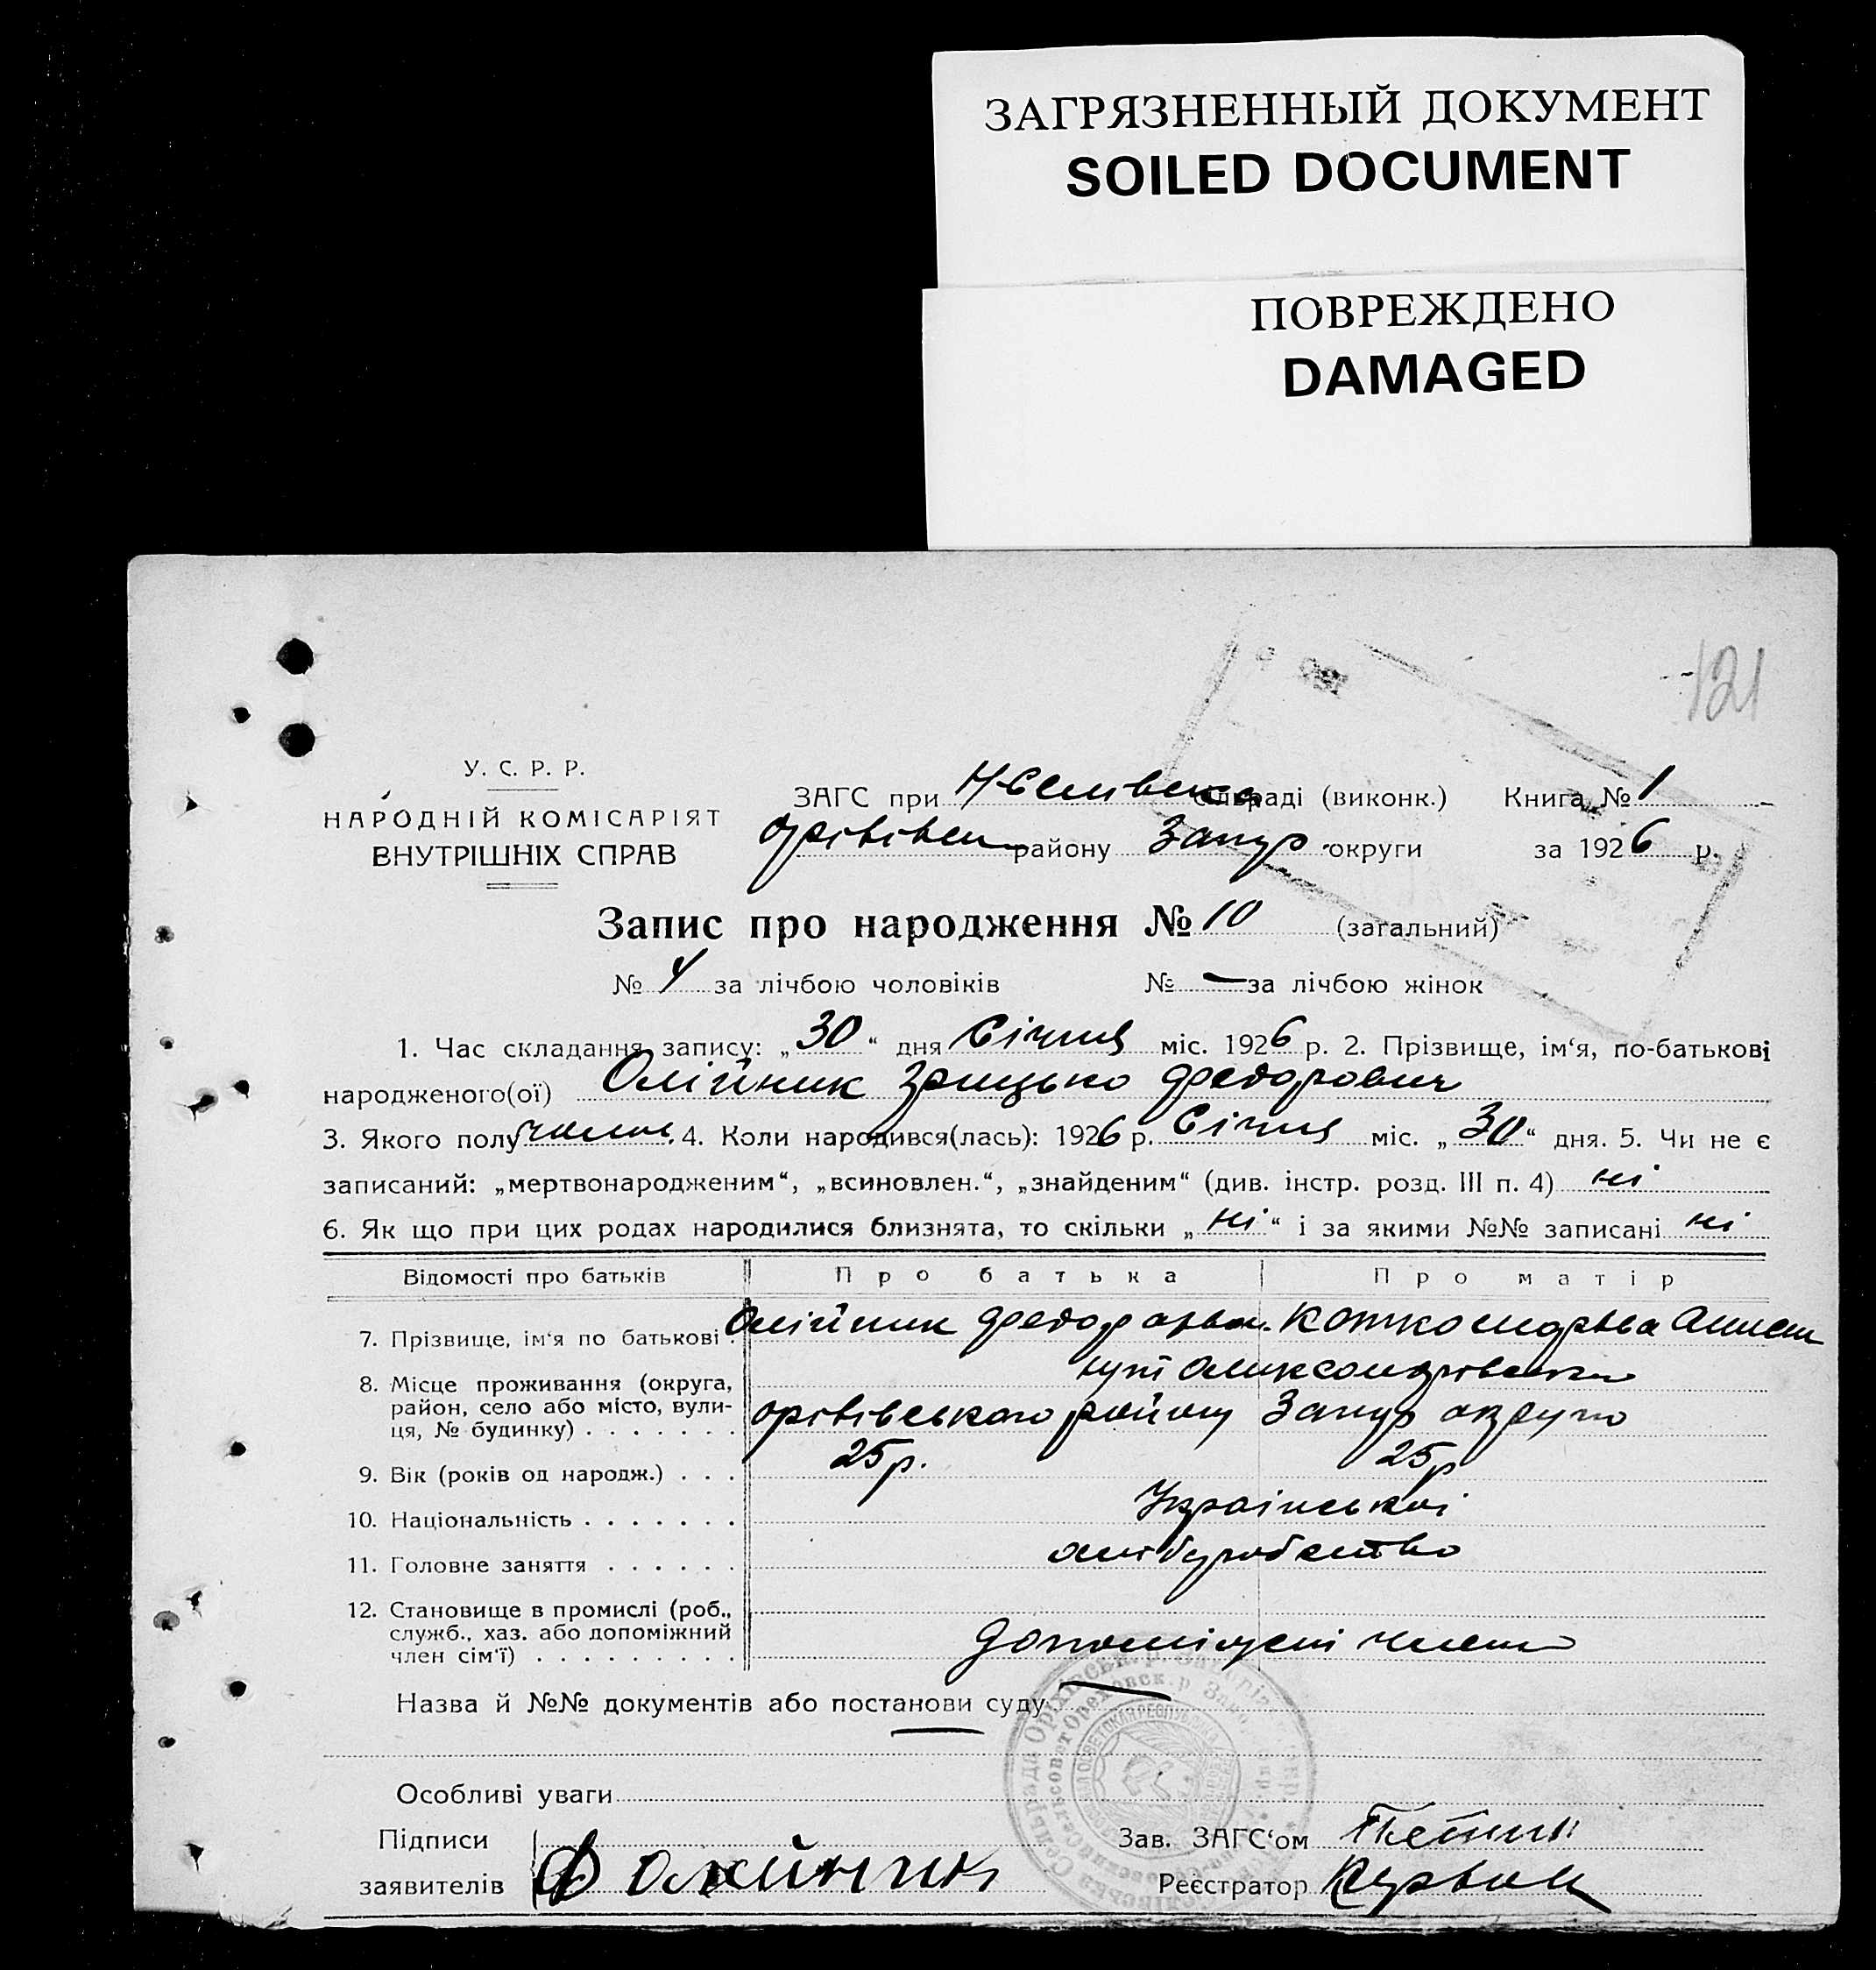 ЗАГРЯЗНЕННЫЙ ДОКУМЕНТ
SOILED DOCUMENT
ПОВРЕЖДЕНО
DAMAGED
121
У. С. Р. Р.
НАРОДНІЙ КОМІСАРІЯТ
ВНУТРІШНІХ СПРАВ
ЗАГС при сільраді (виконк.) Книга № 1
району Запор округи за 1926 р.
Запис про народження № 10 (загальний)
№ 4 за лічбою чоловіків № — за лічбою жінок
1. Час складання запису: „30“ дня Січня міс. 1926 р. 2. Прізвище, ім‘я, по-батькові
народженого(ої) Олійник Грицько Федорович
3. Якого полу чолов. 4. Коли народився(лась): 1926 р. Січня міс. „30“ дня. 5. Чи не є
записаний: „мертвонародженим“, „всиновлен.“, „знайденим“ (див. інстр. розд. III п. 4) ні
6. Як що при цих родах народилися близнята, то скільки „ні“ і за якими №№ записані ні
Відомості про батьків Про батька Про матір
7. Прізвище, ім‘я по батькові Олійник Федор
8. Місце проживання (округа,
район, село або місто, вули-
ця, № будинку) оріхівського району Запор округи
9. Вік (років од народж.) 25 р. 25 р
10. Національність Української
11. Головне заняття хліборобство
12. Становище в промислі (роб.,
служб., хаз. або допоміжний
член сім‘ї) допоміжні члени
Назва й №№ документів або постанови суду —
Особливі уваги
Підписи
заявителів Ф Олийник
Зав. ЗАГС‘ом
Реєстратор